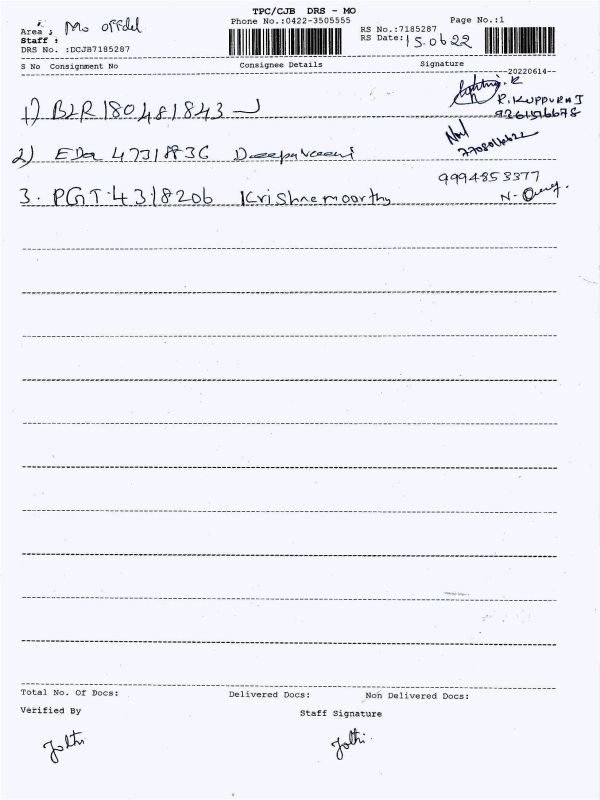 TPC/CJB DRS - MO
Area : Mo offdel
Phone No.:0422-3505555
Page No.:1
Staff :
RS No.:7185287
DRS No. :DCJB7185287
RS Date: 15.06.22
S No Consignment No Consignee Details Signature
--20220614--
1) BLR 180481843
R.KUPPURAJ
2) EDa 47318836
3. PGT 4318206 Krishnamoorthy
9994853377
Total No. Of Docs: Delivered Docs: Non Delivered Docs:
Verified By Staff Signature
Jothi Jothi